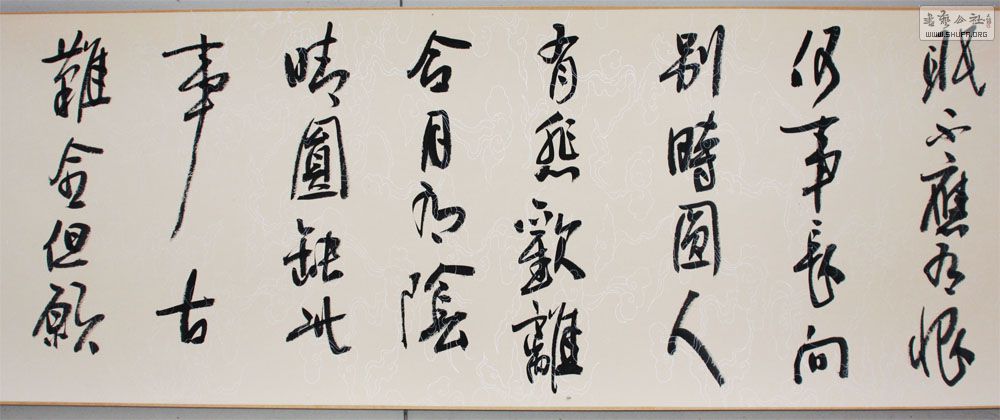 眠不應有恨
何事長向
別時圓人
有悲歡離
合月有陰
晴圓缺此
事古
難全但願
書藝公社
WWW.SHUFA.ORG